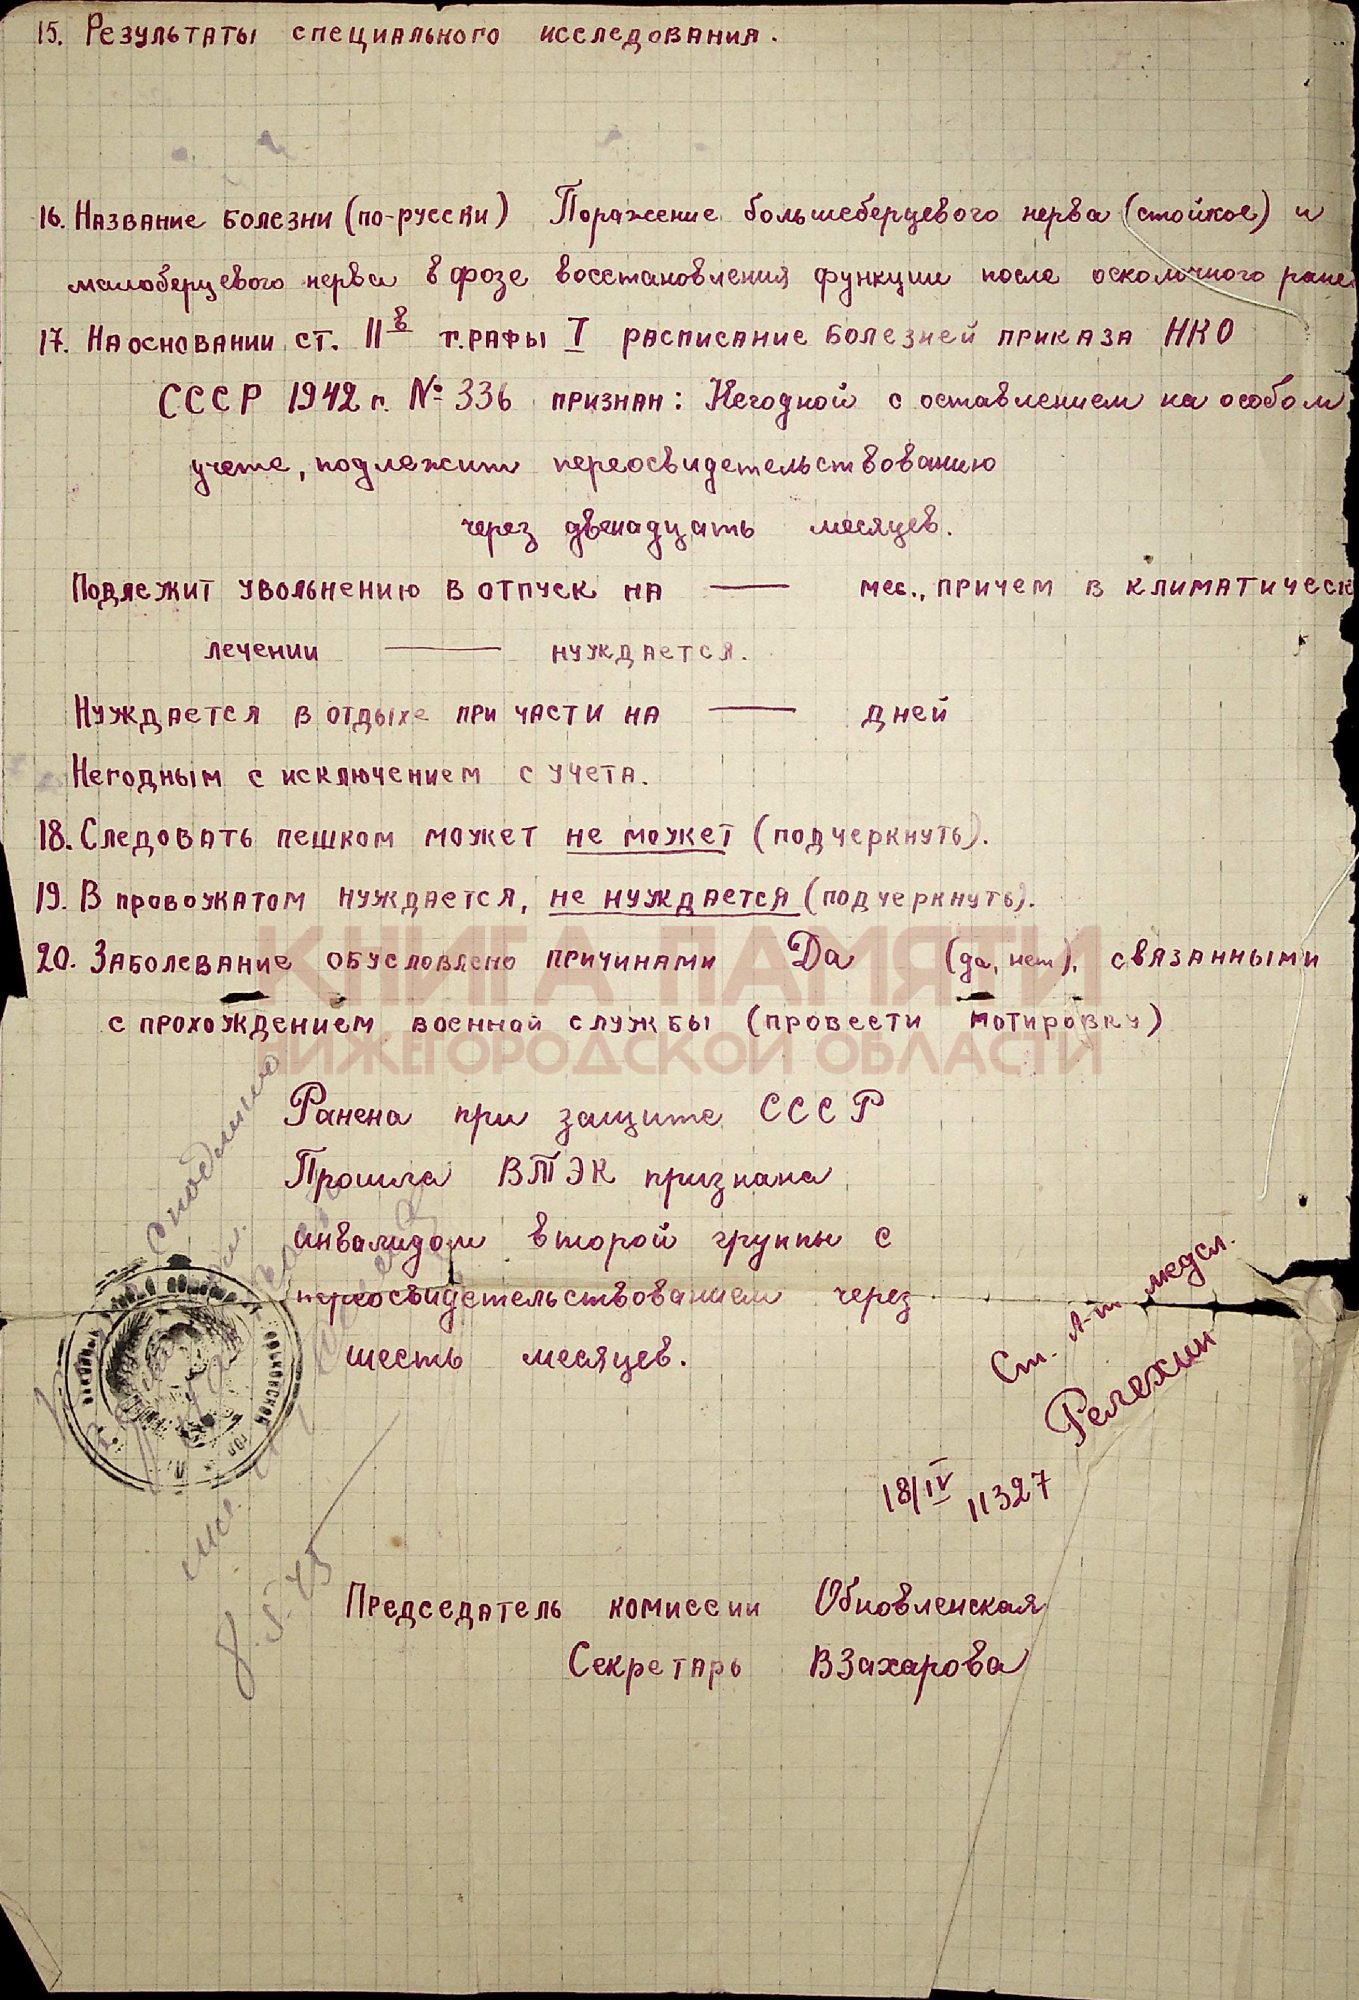 15. Результаты специального исследования.
16. Название болезни (по-русски) Поражение большеберцевого нерва (стойкое) и
малоберцевого нерва в фозе восстановления функции после осколочного ране
17. На основании ст. 11в графы I расписание болезней приказа НКО
СССР 1942 г. № 336 признан: Негодной с оставлением на особом
учете, подлежит переосвидетельствованию
через двенадцать месяцев.
Подлежит увольнению в отпуск на — мес., причем в климатическ
лечении — нуждается.
Нуждается в отдыхе при части на — дней
Негодным с исключением с учета.
18. Следовать пешком может не может (подчеркнуть).
19. В провожатом нуждается, не нуждается (подчеркнуть).
20. Заболевание обусловлено причинами Да (да, нет), связанными
КНИГА ПАМЯТИ
с прохождением военной службы (провести мотировку)
НИЖЕГОРОДСКОЙ ОБЛАСТИ
Ранена при защите СССР
Прошла ВТЭК признана
инвалидом второй группы с
переосвидетельствованием через
шесть месяцев.
Ст. л-т медсл.
Релехин
18/IV 11327
8.5.45
Председатель комиссии Обновленская
Секретарь ВЗахарова